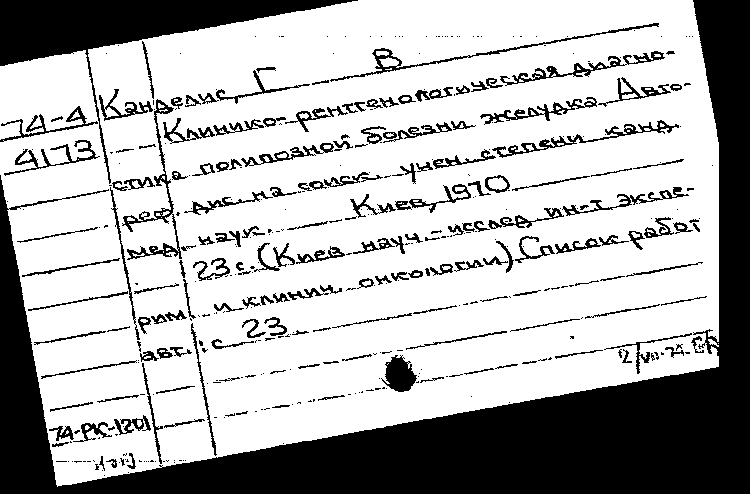 74-4
4173
Канделис, Г В
Клинико-рентгенологическая диагно-
стика полипозной болезни желудка. Авто-
реф. дис. на соиск. учен. степени канд.
мед. наук. Киев, 1970
23 с. (Киев науч.-исслед ин-т экспе-
рим. и клинич. онкологии). Список работ
авт.: с 23.
2/VII-74.
74-РК-1201